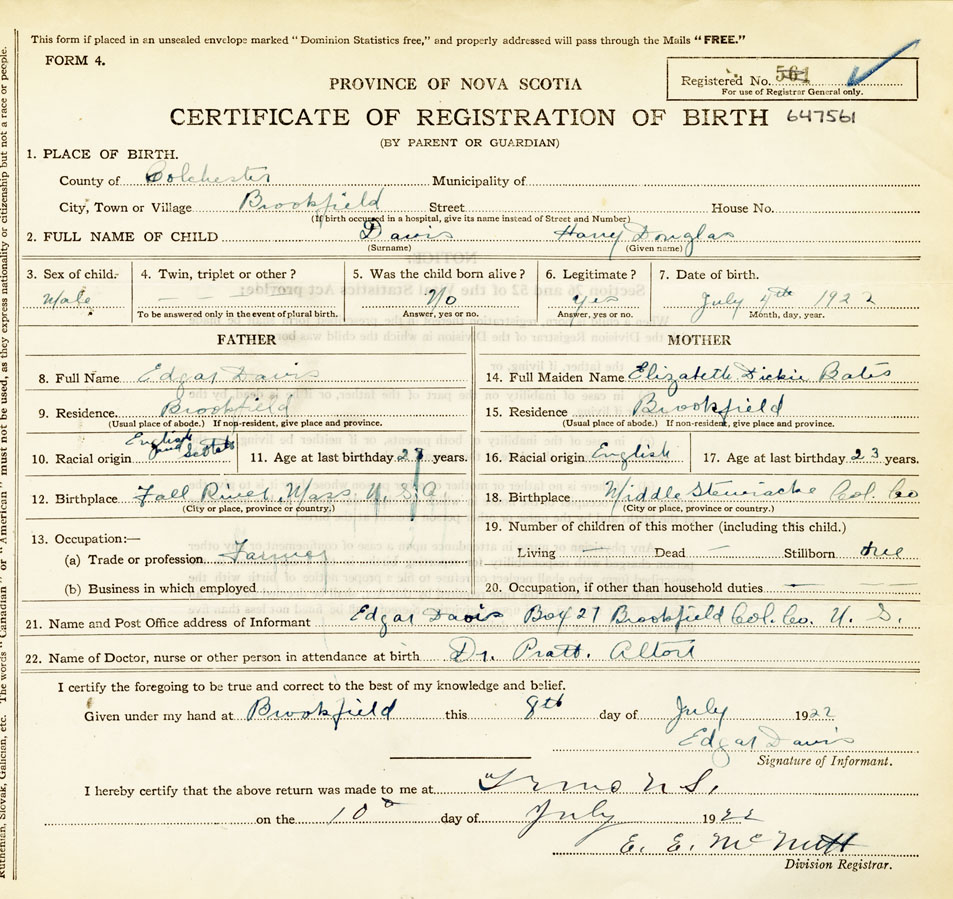 This form if placed in an unsealed envelope marked "Dominion Statistics free," and properly addressed will pass through the Mails "FREE."
FORM 4.
Registered No. 561
For use of Registrar General only.
PROVINCE OF NOVA SCOTIA
CERTIFICATE OF REGISTRATION OF BIRTH 647561
(BY PARENT OR GUARDIAN)
1. PLACE OF BIRTH.
County of Colchester Municipality of
City, Town or Village Brookfield Street House No.
(If birth occured in a hospital, give its name instead of Street and Number)
2. FULL NAME OF CHILD Davis Harry Douglas
(Surname) (Given name)
3. Sex of child. 4. Twin, triplet or other? 5. Was the child born alive? 6. Legitimate? 7. Date of birth.
Male — — — No yes July 4th 1922
To be answered only in the event of plural birth. Answer, yes or no. Answer, yes or no. Month, day, year.
FATHER MOTHER
8. Full Name Edgar Davis 14. Full Maiden Name Elizabeth Dickie Bates
9. Residence. Brookfield 15. Residence Brookfield
(Usual place of abode.) If non-resident, give place and province. (Usual place of abode.) If non-resident, give place and province.
10. Racial origin English and 11. Age at last birthday 27 years. 16. Racial origin English 17. Age at last birthday 23 years.
12. Birthplace Fall River, Mass. U.S.A. 18. Birthplace Middle Stewiacke Col. Co
(City or place, province or country,) (City or place, province or country.)
13. Occupation:— 19. Number of children of this mother (including this child.)
(a) Trade or profession Farmer Living — Dead — Stillborn
(b) Business in which employed 20. Occupation, if other than household duties — —
21. Name and Post Office address of Informant Edgar Davis Box 27 Brookfield Col. Co. N. S.
22. Name of Doctor, nurse or other person in attendance at birth Dr. Pratt.
I certify the foregoing to be true and correct to the best of my knowledge and belief.
Given under my hand at Brookfield this 8th day of July 1922
Edgar Davis
Signature of Informant.
I hereby certify that the above return was made to me at N S.
on the 10 day of July 1922
E. E. McNutt
Division Registrar.
Ruthenian, Slovak, Galician, etc. The words "Canadian" or "American" must not be used, as they express nationality or citizenship but not a race or people.